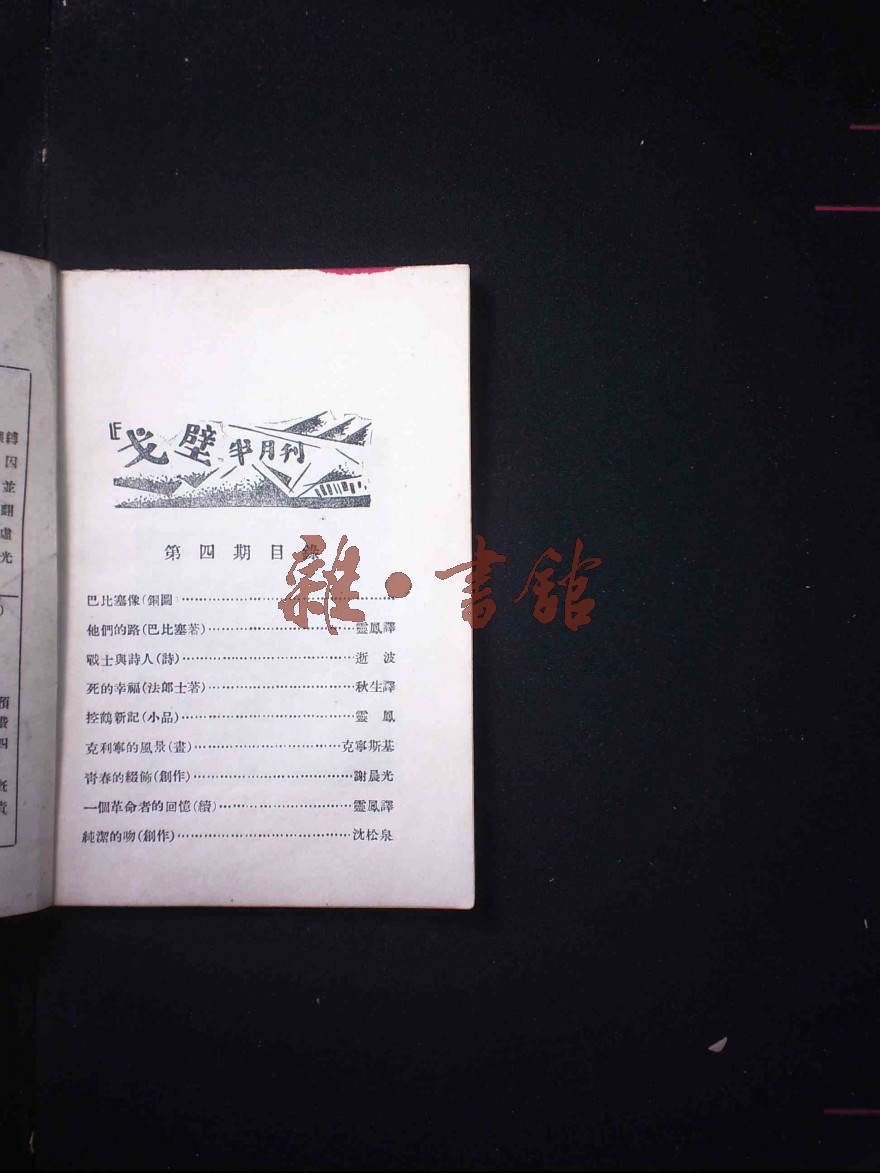 戈壁半月刊
第四期目錄
巴比塞像(銅圖
他們的路(巴比塞著)⋯⋯靈鳳譯
戰士與詩人(詩)⋯⋯逝 波
死的幸福(法郎士著)⋯⋯秋生譯
控鶴新記(小品)⋯⋯靈 鳳
克利寧的風景(畫)⋯⋯克寧斯基
青春的綴飾(創作)⋯⋯謝晨光
一個革命者的回憶(續)⋯⋯靈鳳譯
純潔的吻(創作)⋯⋯沈松泉
雜·書館
因
並
翻
虛
光
預
費
四